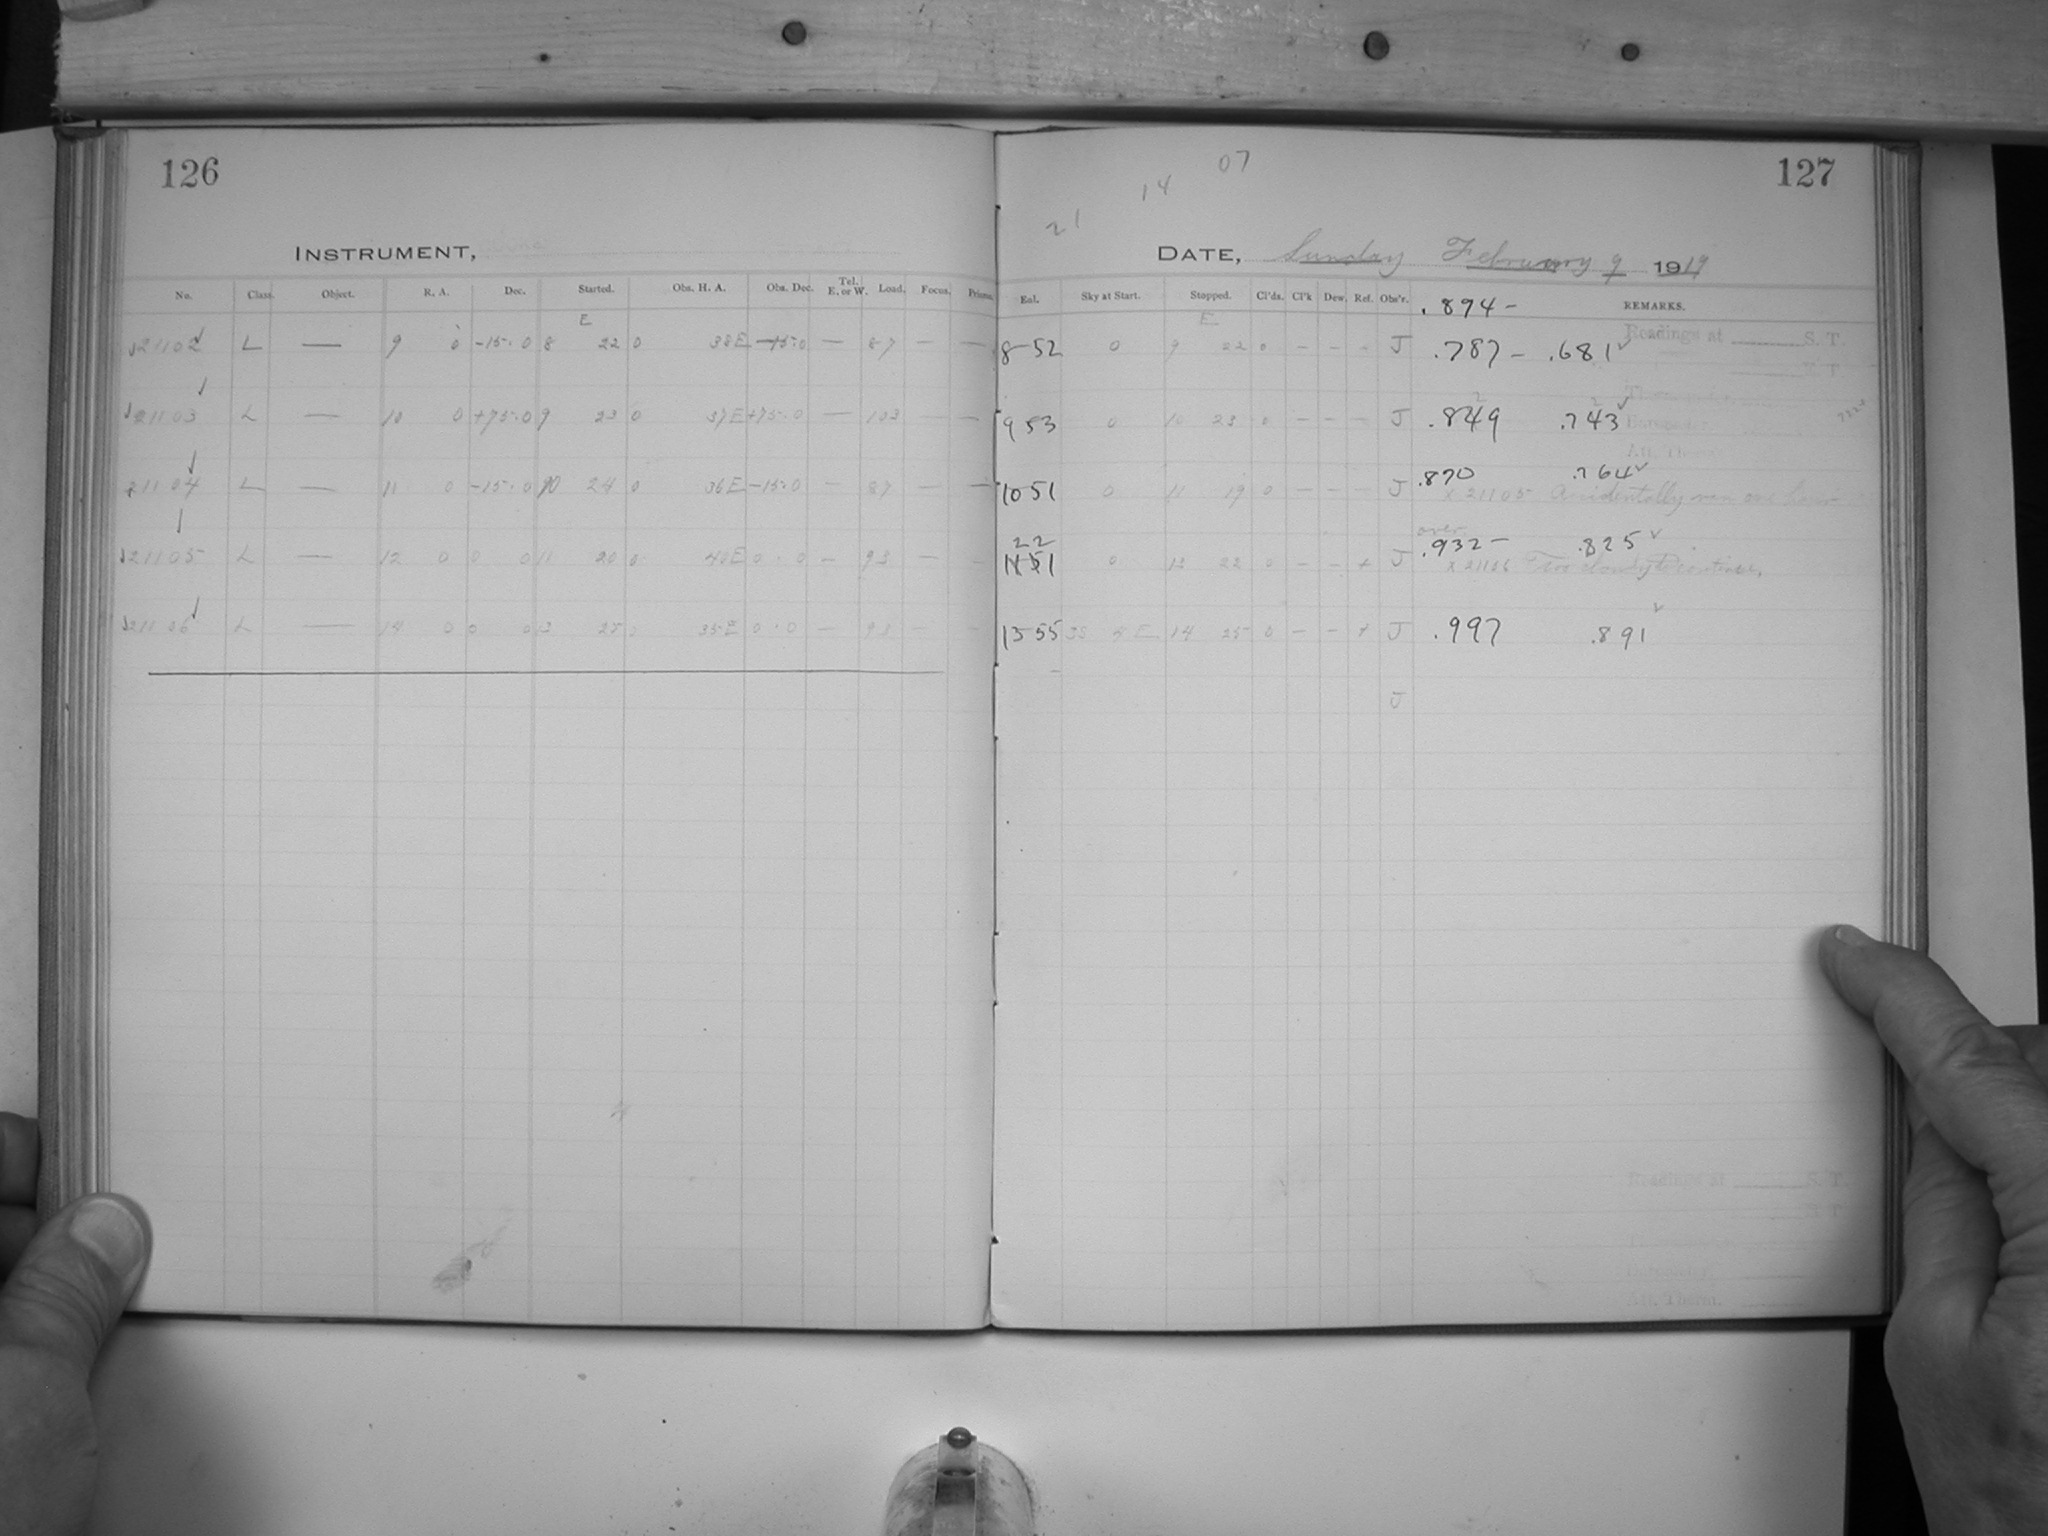 126
INSTRUMENT,
No. Class. Object. R. A. Dec. Started. Obs. H. A. Obs. Dec. Tel. E. or W. Load. Focus. Prisms.
E
21102 L — 9 0 -15.0 8 22 0 38E -15.0 — 87 — —
21103 L — 10 0 +75.0 9 23 0 37E +75.0 — 103 — —
21104 L — 11 0 -15.0 10 24 0 36E -15.0 — 87 — —
21105 L — 12 0 0 0 11 20 0 40E 0 0 — 93 — —
21106 L — 14 0 0 0 13 25 35E 0.0 — 93 — —
07
127
14
21
DATE, Sunday February 9 1919
Eal. Sky at Start. Stopped. Cl'ds. Cl'k Dew. Ref. Obs'r. .894 – REMARKS.
E
Readings at S. T.
8 52 0 9 22 0 – – – J .787 – .681 ✓
9 53 0 10 23 0 – – – J .849 .743 ✓
2 2
10 51 0 11 19 0 – – – J .870 .764 ✓
x 21105 Accidentally ran one hour
over
22
11 51 0 12 22 0 – – J .932 – .825 ✓
x 21106 Too cloudy to continue.
13 55 4 E 14 25 0 – – J .997 .891 ✓
J
Readings at S. T.
Att. Therm.